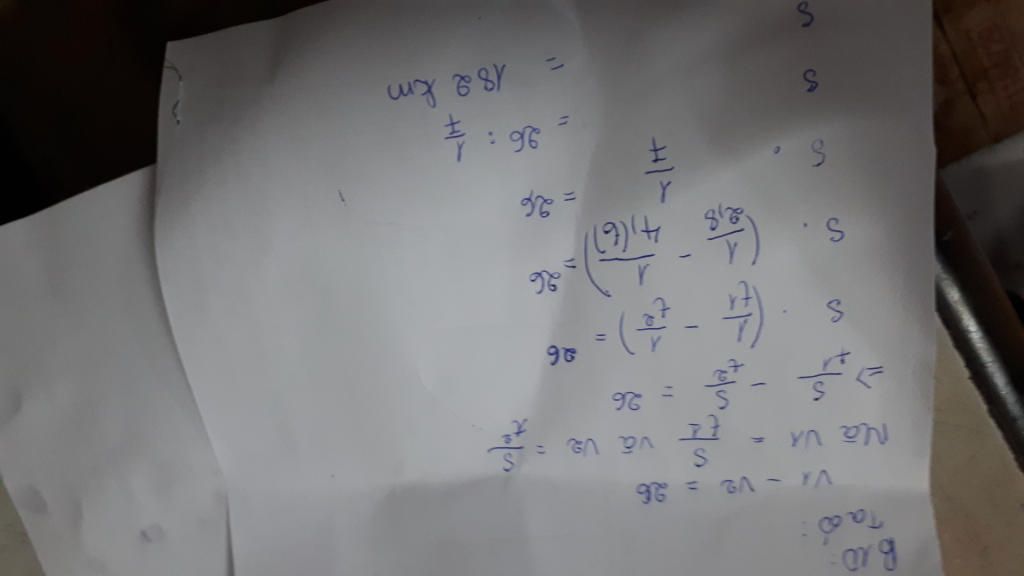 BLĐ:
Ta có:
V1 - V2 = 26
Mà V1 = S/t1 và V2 = S/t2
=> S/t1 - S/t2 = 26
S . (1/t1 - 1/t2) = 26
S . (1/2,8 - 1/4,(6)) = 26
S . 1/7 = 26
S = 26 : 1/7
S = 182 km